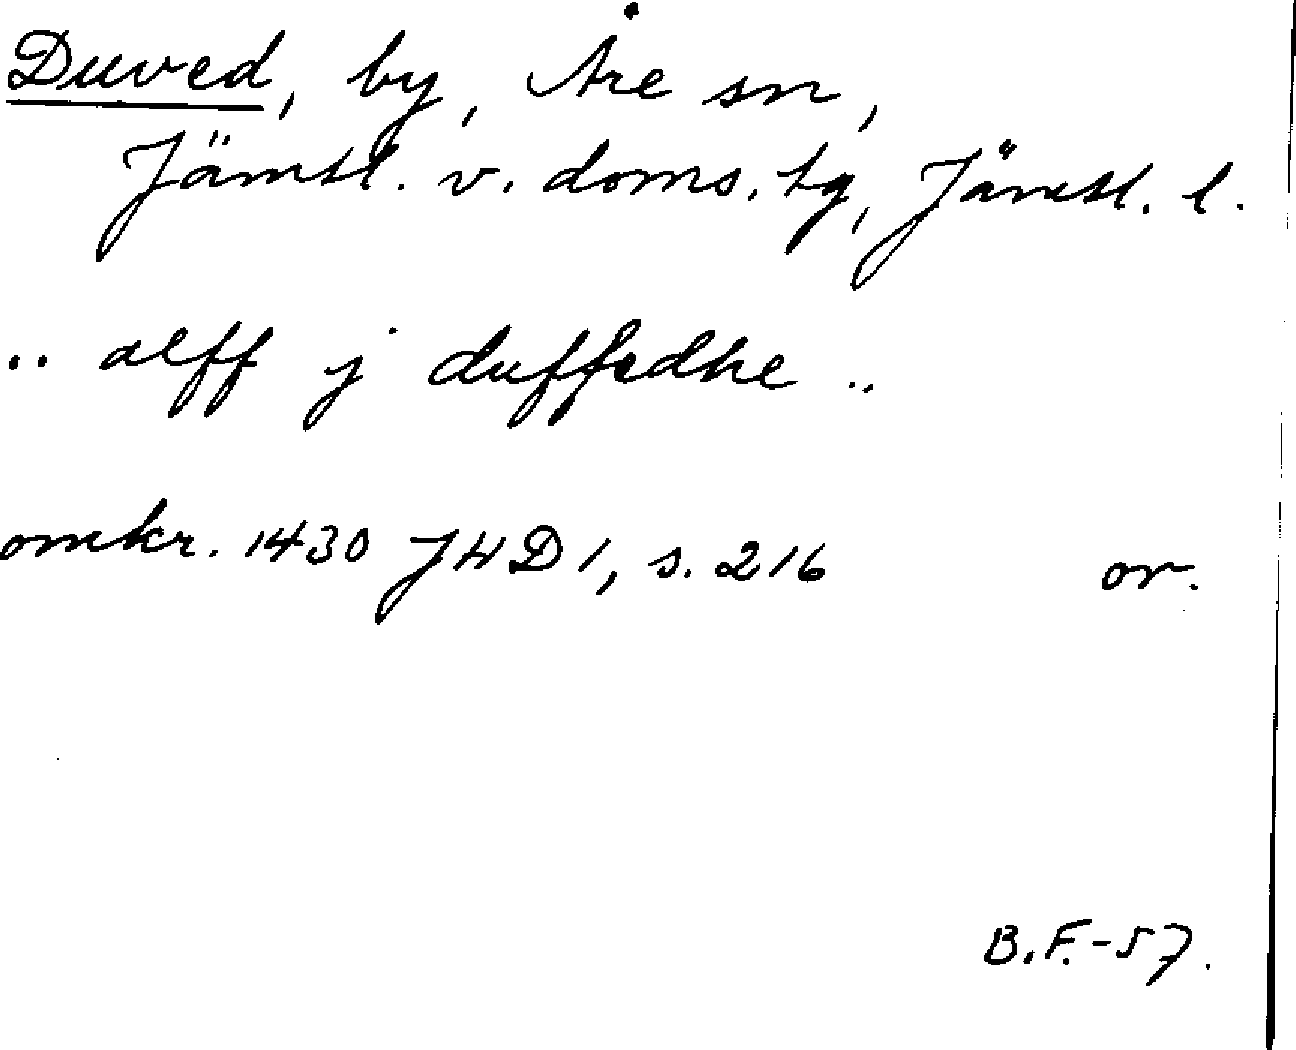 Duved, by, Åre sn,
Jämtl. v. doms. tg, Jämtl. l.
.. alff j duffedhe ..
omkr. 1430 JHD 1, s. 216 or.
B.F.-57.